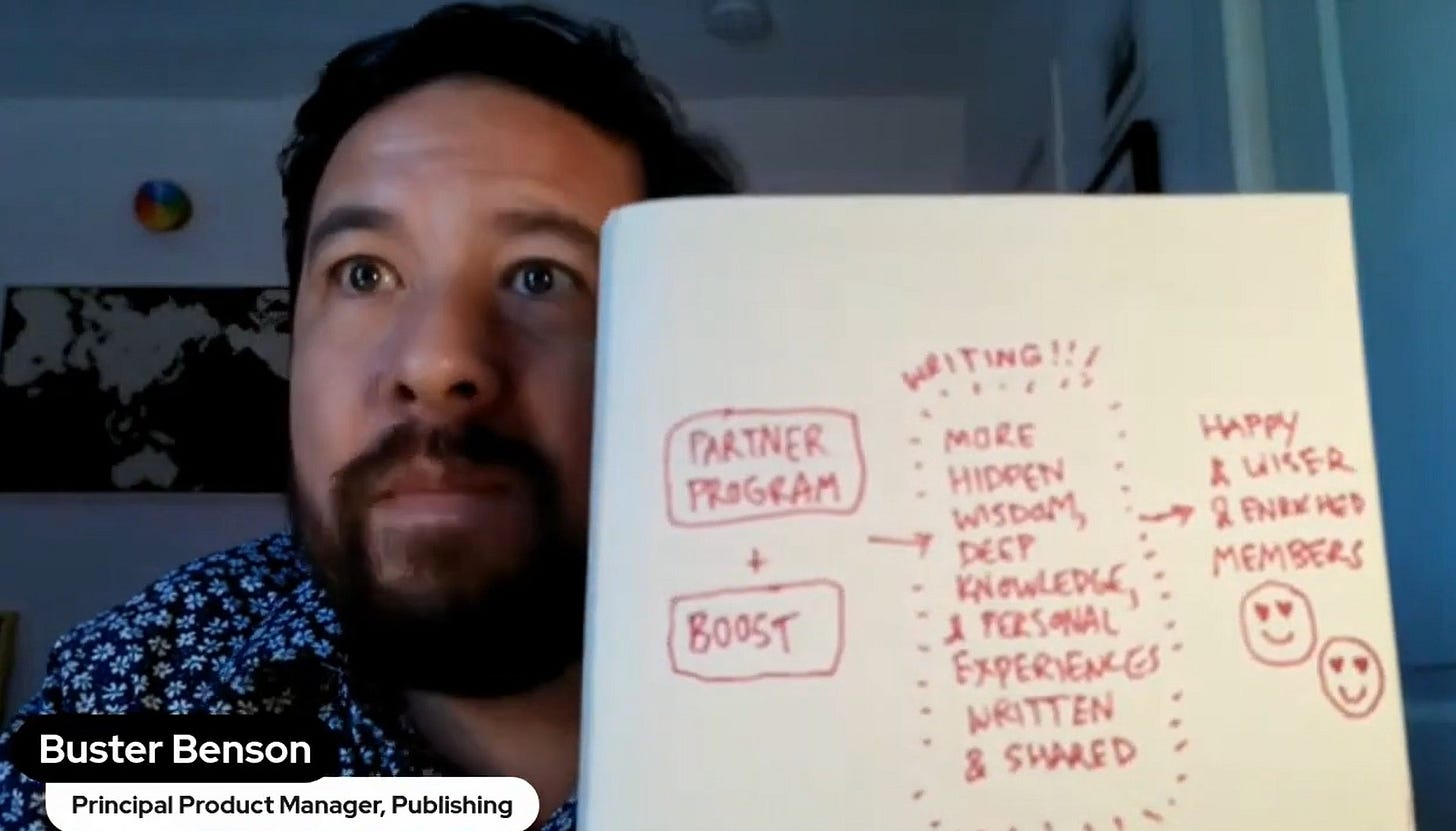 WRITING!!!
PARTNER
PROGRAM
+
BOOST
MORE
HIDDEN
WISDOM,
DEEP
KNOWLEDGE,
& PERSONAL
EXPERIENCES
WRITTEN
& SHARED
HAPPY
& WISER
& ENRICHED
MEMBERS
Buster Benson
Principal Product Manager, Publishing